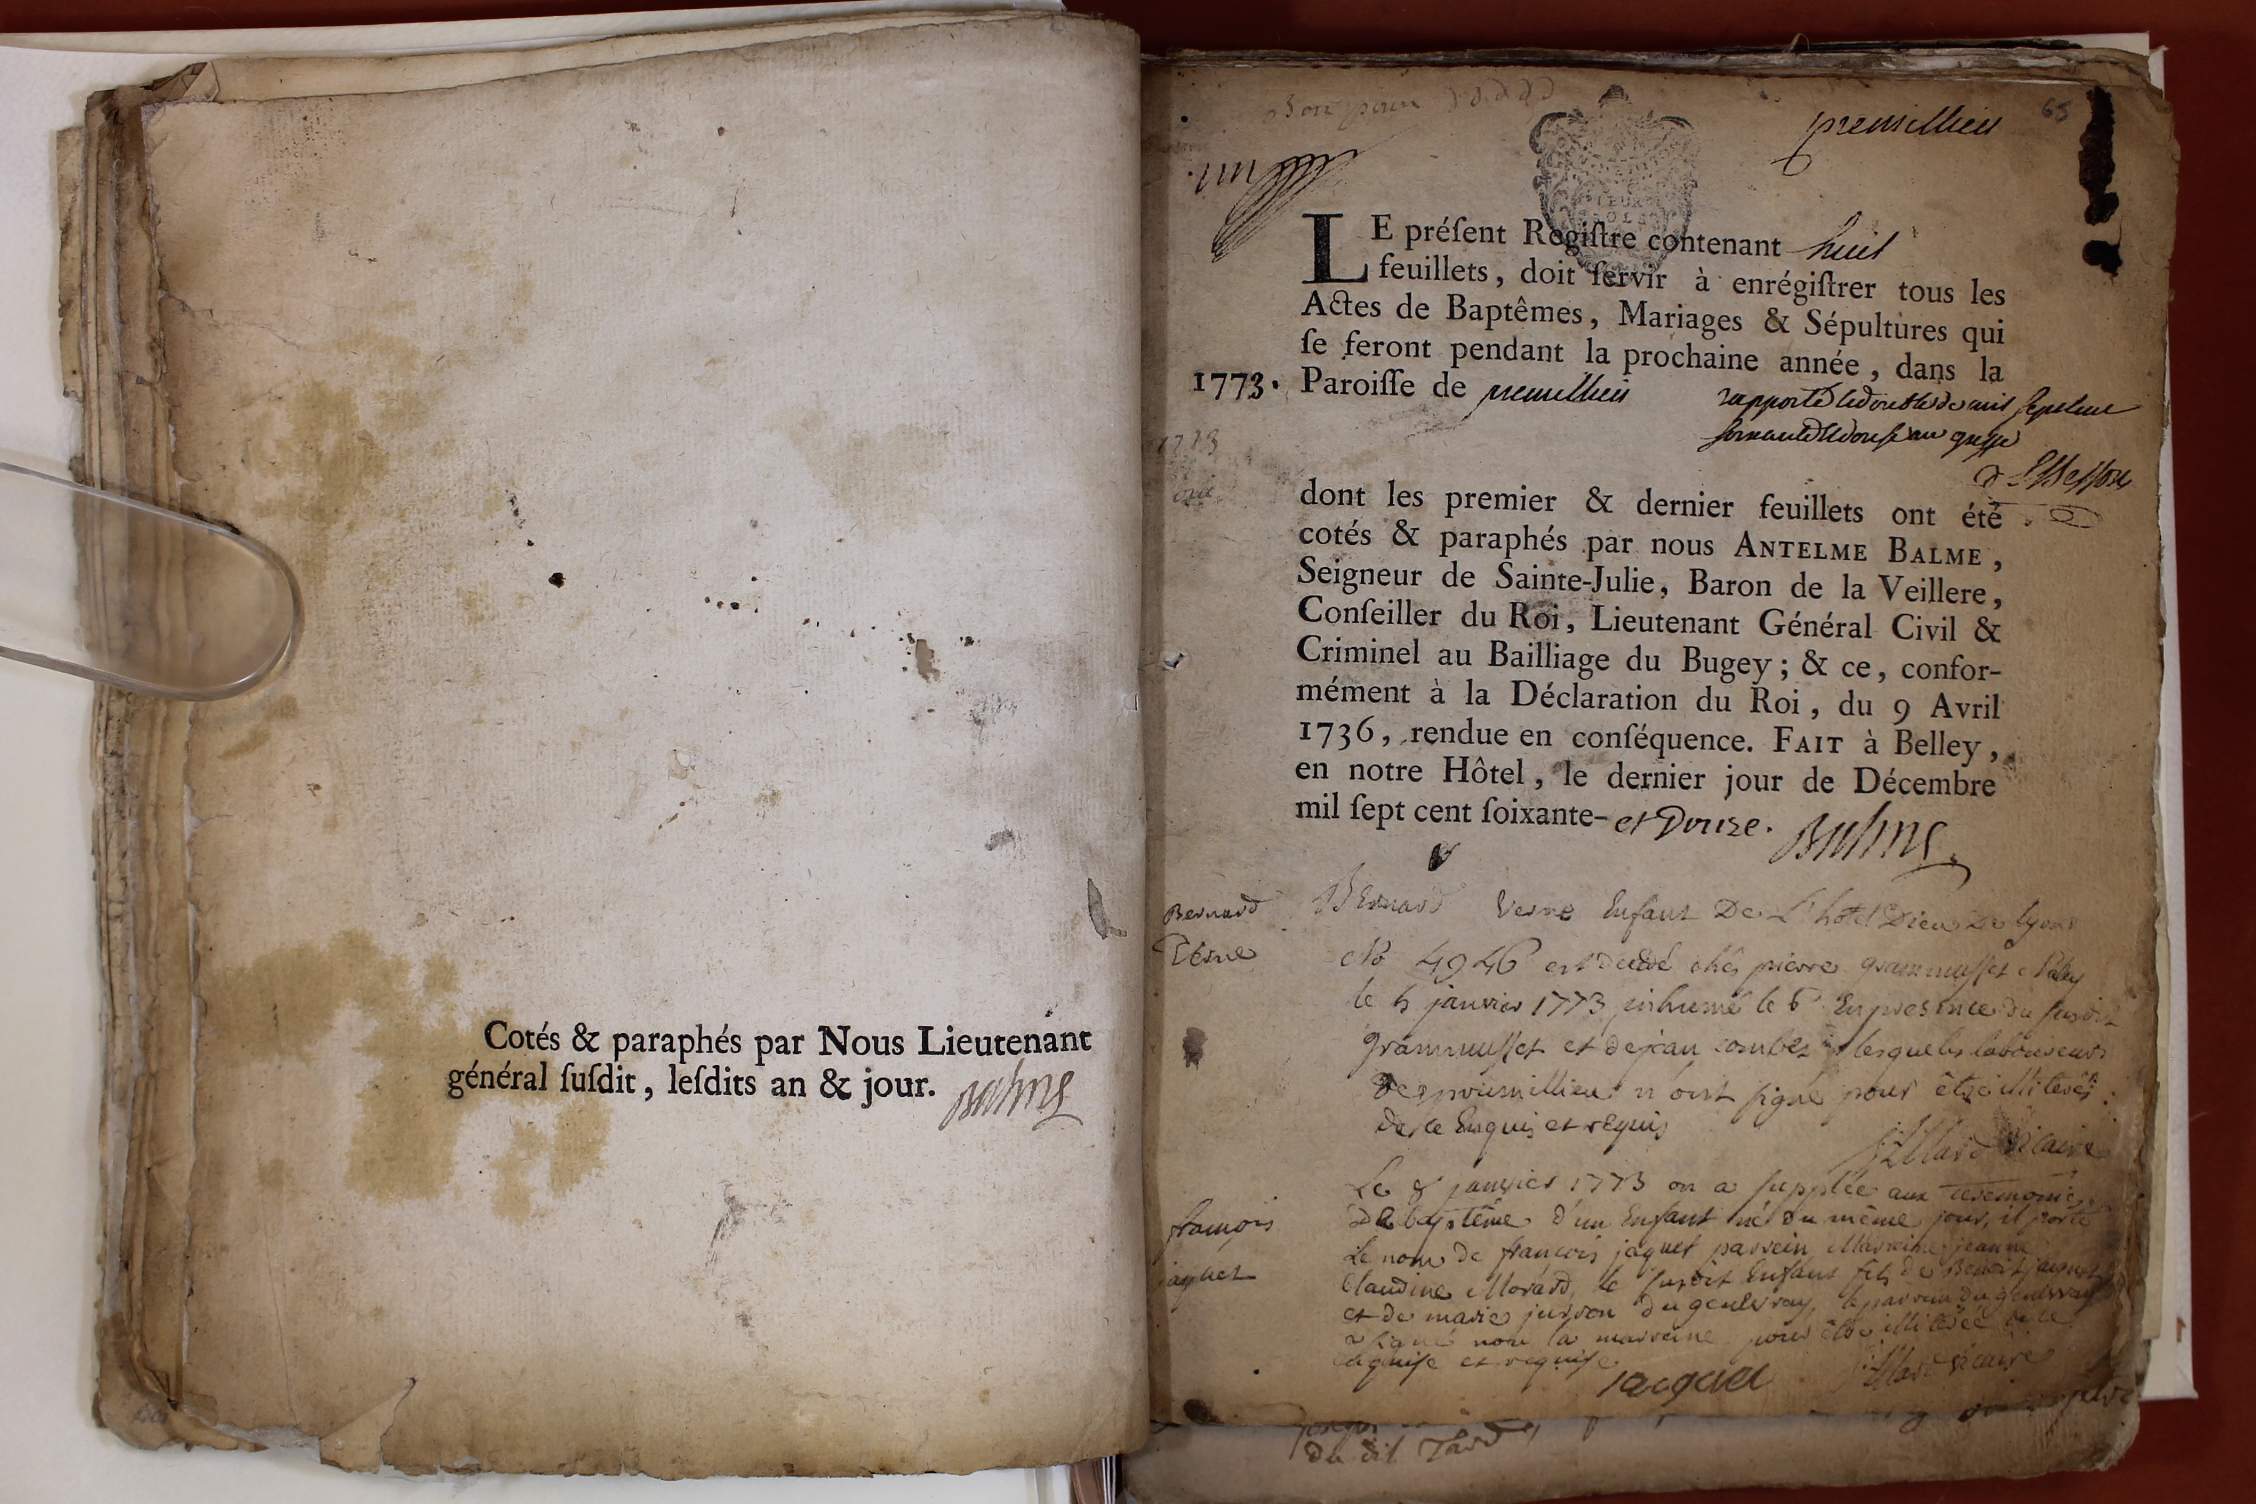 Cotés & paraphés par Nous Lieutenant
général ſuſdit, leſdits an & jour. Balme
Bon pour
premillieu
65
un
LE préſent Regiſtre contenant huit
feuillets, doit ſervir à enrégiſtrer tous les
Actes de Baptêmes, Mariages & Sépultures qui
ſe feront pendant la prochaine année, dans la
1773. Paroiſſe de premillieu
rapporté le double de mil sept cent
soixante et douse au greffe
1773
dont les premier & dernier feuillets ont été
cotés & paraphés par nous ANTELME BALME,
Seigneur de Sainte-Julie, Baron de la Veillere,
Conſeiller du Roi, Lieutenant Général Civil &
Criminel au Bailliage du Bugey; & ce, confor-
mément à la Déclaration du Roi, du 9 Avril
1736, rendue en conſéquence. FAIT à Belley,
en notre Hôtel, le dernier jour de Décembre
mil ſept cent ſoixante- et Douze. Balme
Bernard
Verne
Bernard Verne Enfant De L'hotel Dieu De lyon
No 4946 est décédé chés pierre grammusset
le 5 janvier 1773 inhumé le 6 En presence du susdit
grammusset et de jean combet lesquels laboureurs
De premillieu n'ont signé pour être illiterés
de ce Enquis et requis
Vicaire
françois
jaquet
Le 8 janvier 1773 on a supplée aux ceremonies
De baptême d'un Enfant né du même jour, il porte
Le nom de françois jaquet parrein, Marreine jeanne
Claudine Morard, le susdit Enfant fils de Benoit jaquet
et de marie jurron du genlevray, le parrein du genlevray
a signé non la marreine pour être illiterée de ce
enquise et requise
jacquet
vicaire
du dit